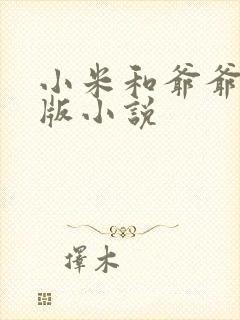 小米和爷爷
版小説
擇木